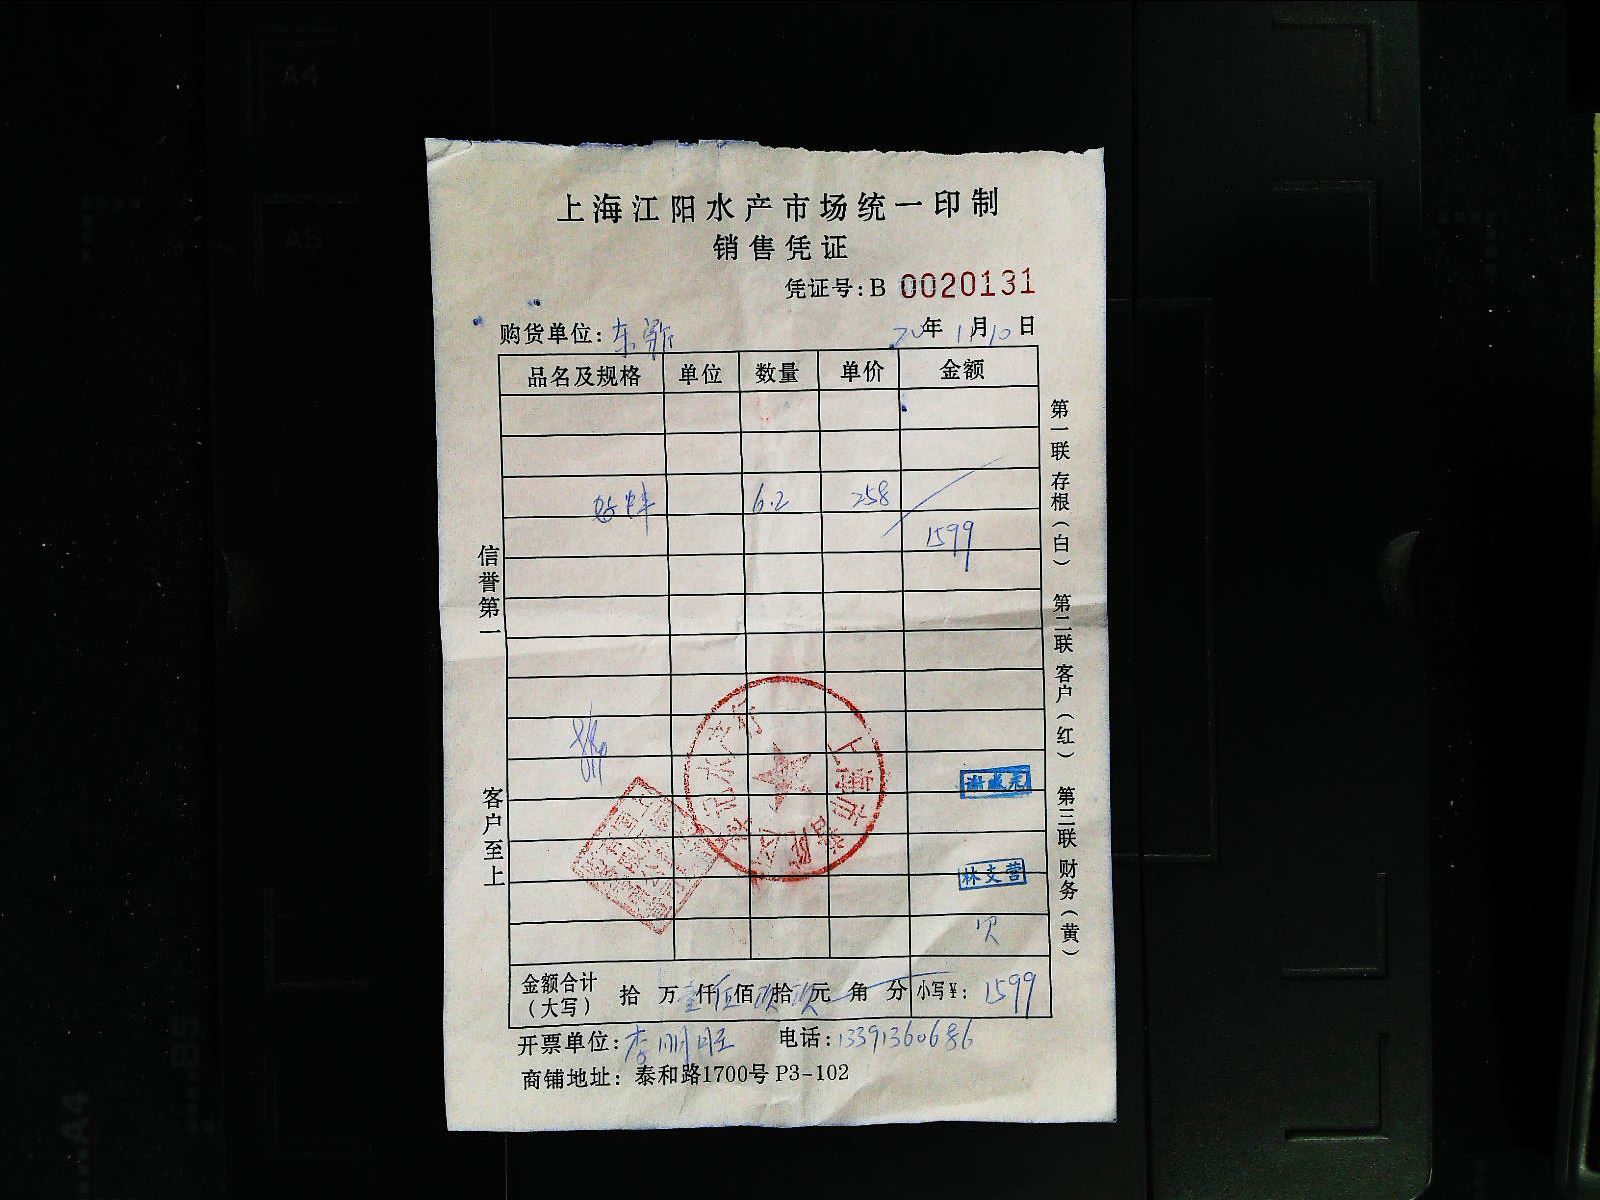 上海江阳水产市场统一印制
销售凭证
凭证号:B 0020131
购货单位: 东
20年11月10日
品名及规格 单位 数量 单价 金额
6.2 258
1599
信誉第一
客户至上
第一联 存根(白) 第二联 客户(红) 第三联 财务(黄)
上海市普陀
水产行
林支营
金额合计(大写) 拾万壹仟伍佰玖拾玖元角分 小写¥: 1599
开票单位: 李刚旺 电话: 13391360686
商铺地址: 泰和路1700号 P3-102
A4
A5
A4
B5